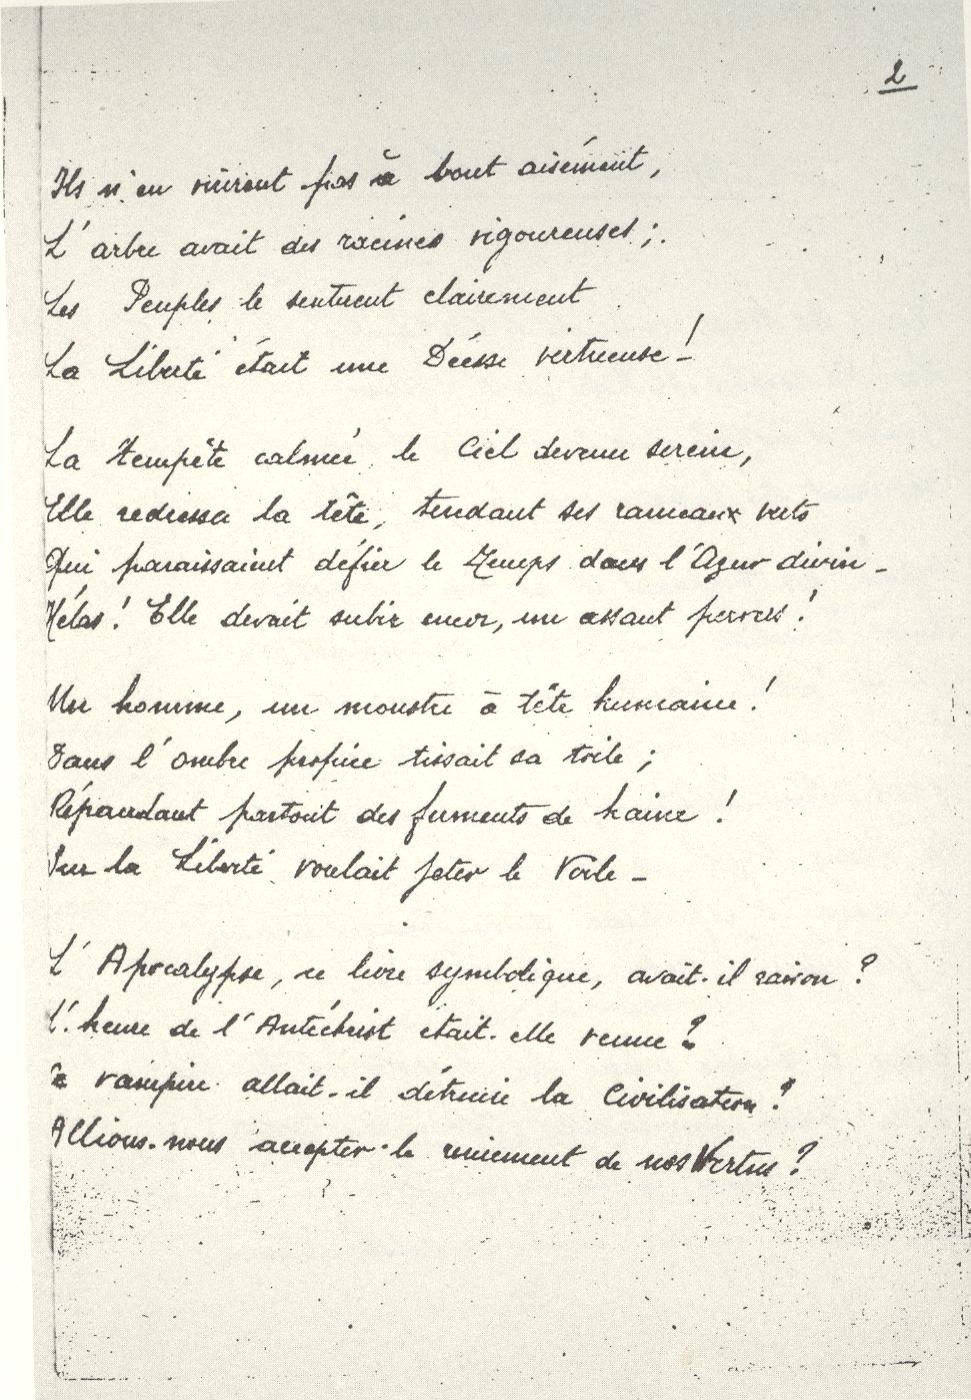 2
Ils n'en vinrent pas à bout aisément,
L'arbre avait des racines vigoureuses ;
Les Peuples le sentirent clairement
La Liberté était une Déesse vertueuse !
La Tempête calmée, le Ciel devenu serein,
Elle redressa la tête, tendant ses rameaux verts
Qui paraissaient défier le Temps dans l'Azur divin -
Hélas ! Elle devait subir encor, un assaut pervers !
Un homme, un monstre à tête humaine !
Dans l'ombre propice tissait sa toile ;
Répandant partout des ferments de haine !
Sur la Liberté voulait jeter le Voile -
L'Apocalypse, ce livre symbolique, avait-il raison ?
L'heure de l'Antéchrist était-elle venue ?
Ce vampire allait-il détruire la Civilisation ?
Allions-nous accepter le reniement de nos Vertus ?